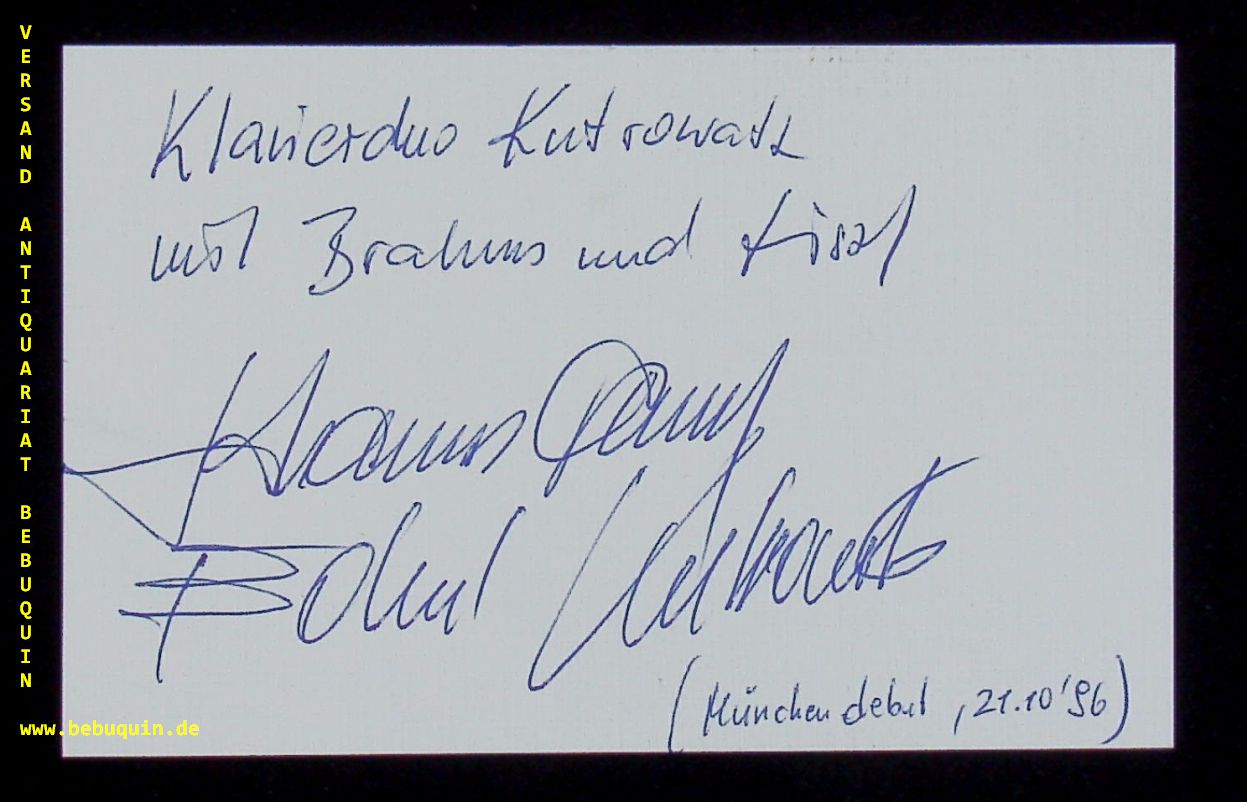 VERSAND ANTIQUARIAT BEBUQUIN
www.bebuquin.de
Klavierduo Kutrowatz
mit Brahms und Liszt
Eduard Kutrowatz
(Münchendebut, 21.10'96)